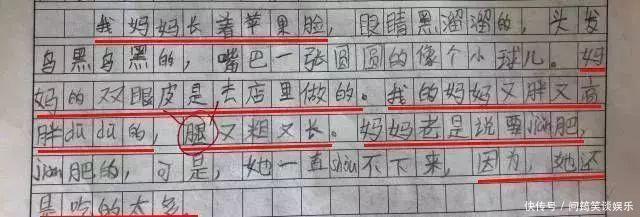 我妈妈长着苹果脸,眼睛黑溜溜的,头发
乌黑乌黑的,嘴巴一张圆圆的像个小球儿。妈
妈的双眼皮是去店里做的。我的妈妈又胖又高
胖dū dū的,腿又粗又长。妈妈老是说要jiǎn肥,
jiǎn肥的,可是,她一直shòu不下来,因为,她还
是吃的太多
快传号 / 问筠笑谈娱乐